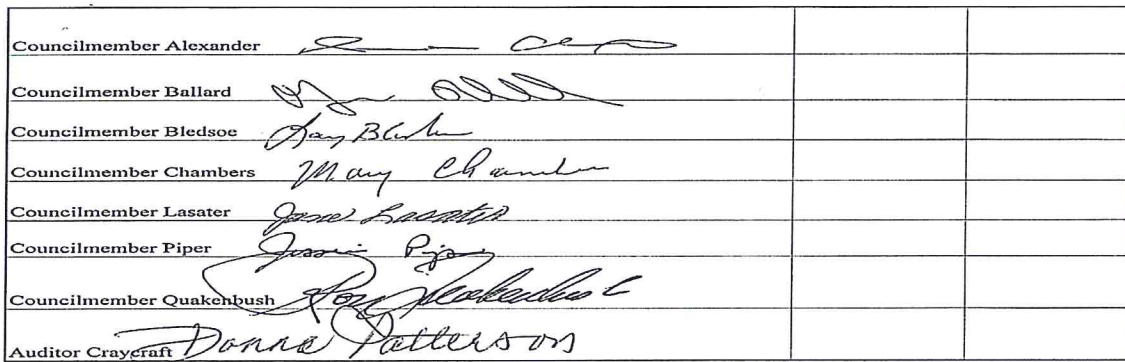 Councilmember Alexander
Councilmember Ballard
Councilmember Bledsoe
Councilmember Chambers Mary Chamber
Councilmember Lasater Lasater
Councilmember Piper Jessie Piper
Councilmember Quakenbush Roy Quakenbush
Auditor Craycraft Donna Patterson